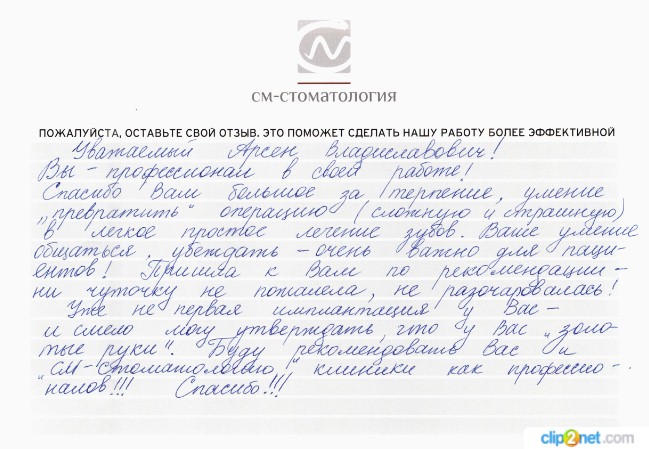 СМ-СТОМАТОЛОГИЯ
ПОЖАЛУЙСТА, ОСТАВЬТЕ СВОЙ ОТЗЫВ. ЭТО ПОМОЖЕТ СДЕЛАТЬ НАШУ РАБОТУ БОЛЕЕ ЭФФЕКТИВНОЙ
Уважаемый Арсен Владиславович!
Вы – профессионал в своей работе!
Спасибо Вам большое за терпение, умение
„превратить" операцию (сложную и страшную)
в легкое простое лечение зубов. Ваше умение
общаться, убеждать – очень важно для паци-
ентов! Пришла к Вам по рекомендации –
ни чуточку не пожалела, не разочаровалась!
Уже не первая имплантация у Вас –
и смело могу утверждать, что у Вас „золо-
тые руки". Буду рекомендовать Вас и
"СМ-Стоматологию" клиники как профессио-
налов!!! Спасибо!!!
clip2net.com